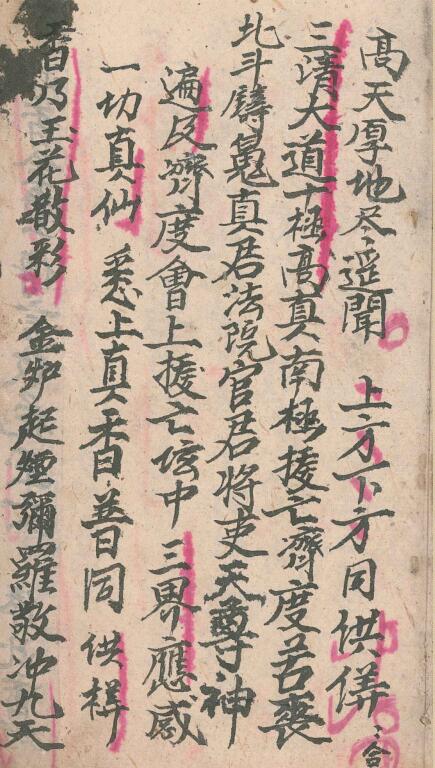 髙天厚地尽遥聞　上方下方同供養、合
三清大道十極髙真南極援亡濟度若喪
北斗儔嵬真君法院官君将吏天尊神
遍及濟度會上援亡侩中　三界應感
一切真仙　悉上真香普同　供養
香乃玉花散彩　金炉起煙彌羅敬冲九天